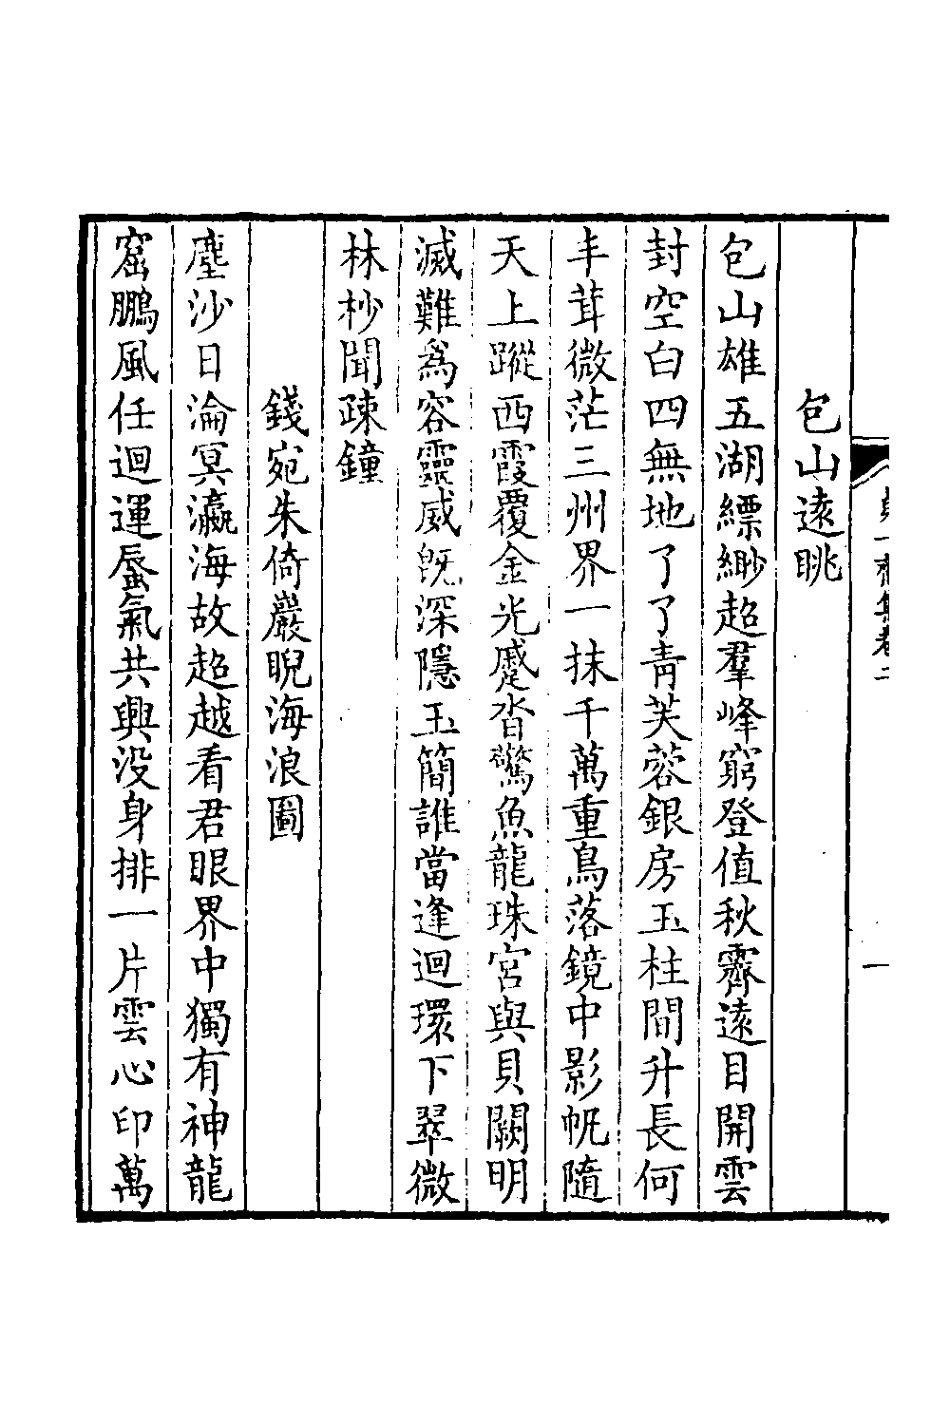 包山遠眺
包山雄五湖縹緲超羣峰窮登值秋霽遠目開雲
封空白四無地了了青芙蓉銀房玉柱間升長何
丰茸微茫三州界一抹千萬重鳥落鏡中影帆隨
天上蹤西霞覆金光蹙沓驚魚龍珠宮與貝闕明
滅難爲容靈威旣深隱玉簡誰當逢迴環下翠微
林杪聞疎鐘
錢宛朱倚巖睨海浪圖
塵沙日淪冥瀛海故超越看君眼界中獨有神龍
窟鵬風任迴運蜃氣共興没身排一片雲心印萬
一齋集卷二
一